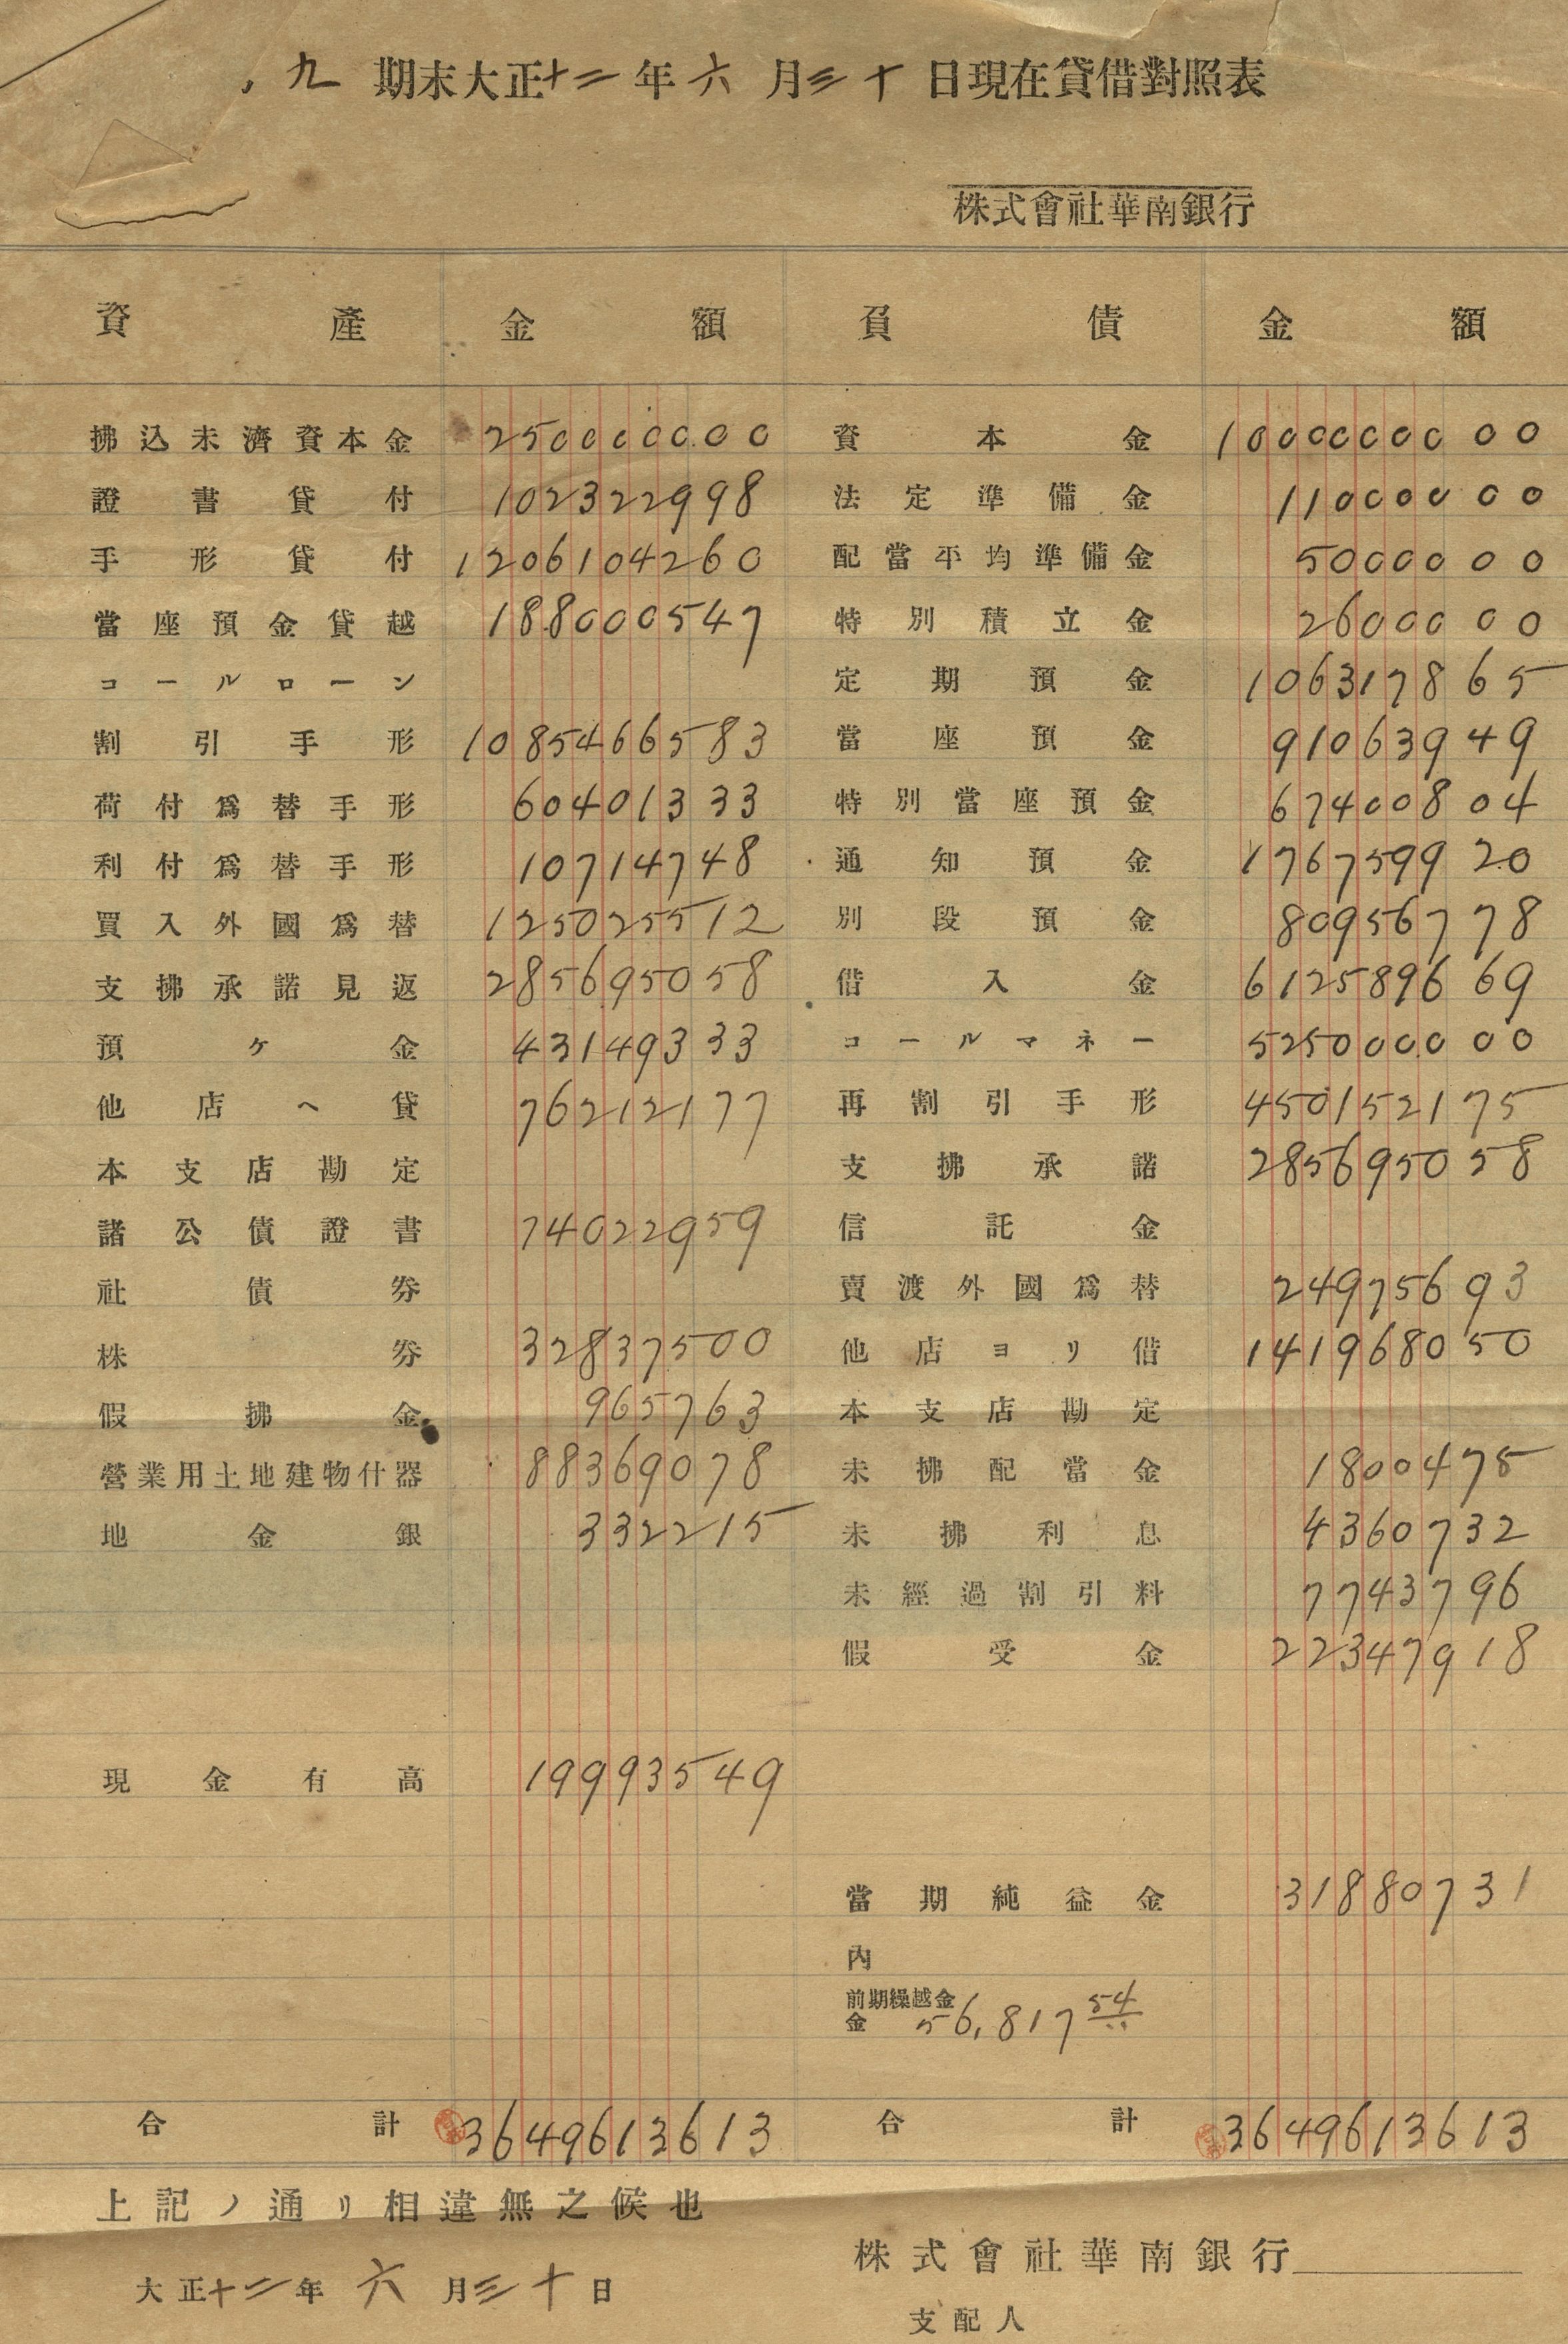 九期末大正十二年六月三十日現在貸借對照表
株式會社華南銀行
資產 金額 負債 金額
拂込未濟資本金 250000000 資本金 1000000000
證書貸付 102322998 法定準備金 11000000
手形貸付 1206104260 配當平均準備金 5000000
當座預金貸越 188000547 特別積立金 2600000
コールローン 定期預金 106317865
割引手形 1085466583 當座預金 91063949
荷付爲替手形 60401333 特別當座預金 67400804
利付爲替手形 10714748 通知預金 176759920
買入外國爲替 125025512 別段預金 80956778
支拂承諾見返 285695058 借入金 612589669
預ケ金 43149333 コールマネー 525000000
他店ヘ貸 76212177 再割引手形 450152175
本支店勘定 支拂承諾 285695058
諸公債證書 74022959 信託金
社債券 賣渡外國爲替 24975693
株券 32837500 他店ヨリ借 141968050
假拂金 965763 本支店勘定
營業用土地建物什器 88369078 未拂配當金 1800475
地金銀 332215 未拂利息 4360732
未經過割引料 7743796
假受金 22347918
現金有高 19993549
當期純益金 31880731
內
前期繰越金
金 56,817 54
合計 3649613613 合計 3649613613
上記ノ通リ相違無之候也
株式會社華南銀行
大正十二年六月三十日
支配人